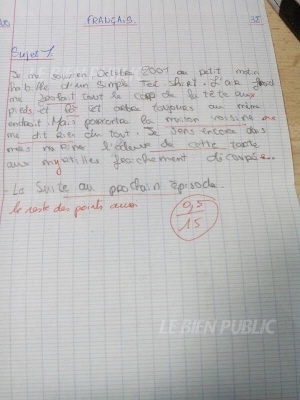 FRANÇAIS
Sujet 1
Je me souvien, Octobre 2001 au petit matin
habillé d'un simple Tee Shirt. L'air froid
me tout le corp de la tête aux
pieds et toujours au même
endroit. Mais pourtant la maison voisine ne
me dit rien du tout. Je sens encore dans
mes narine l'odeur de cette tarte
aux myrtilles frachement découpée...
- La Suite au prochain épisode.
le reste des points aussi
0,5
15
LE BIEN PUBLIC